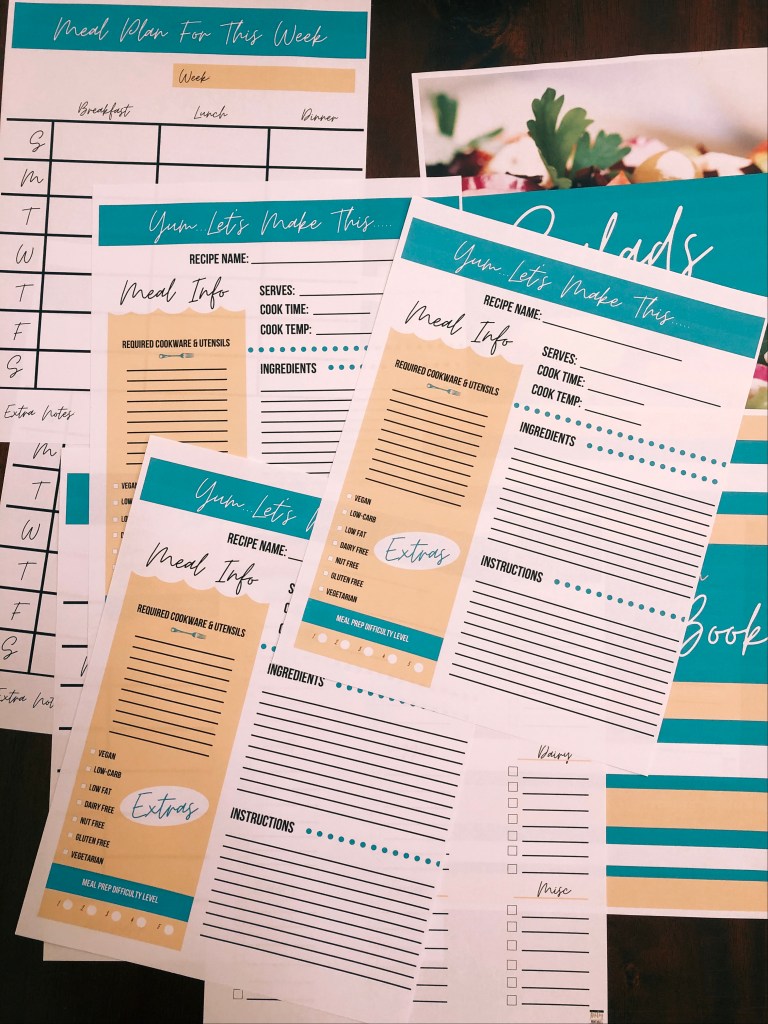 Meal Plan For This Week
Week
Breakfast Lunch Dinner
S
M
T
W
T
F
S
Extra Notes
M
T
W
T
F
S
Extra Not
Salads
Book
Yum...Let's Make This.....
RECIPE NAME:
Meal Info
SERVES:
COOK TIME:
COOK TEMP:
REQUIRED COOKWARE & UTENSILS
INGREDIENTS
VEGAN
LOW-
LOW
Yum...Let's Make This.....
RECIPE NAME:
Meal Info
SERVES:
COOK TIME:
COOK TEMP:
REQUIRED COOKWARE & UTENSILS
INGREDIENTS
VEGAN
LOW-CARB
LOW FAT
DAIRY FREE
NUT FREE
GLUTEN FREE
VEGETARIAN
Extras
INSTRUCTIONS
MEAL PREP DIFFICULTY LEVEL
1 2 3 4 5
Yum...Let's M
RECIPE NAME:
Meal Info
REQUIRED COOKWARE & UTENSILS
INGREDIENTS
VEGAN
LOW-CARB
LOW FAT
DAIRY FREE
NUT FREE
GLUTEN FREE
VEGETARIAN
Extras
INSTRUCTIONS
MEAL PREP DIFFICULTY LEVEL
1 2 3 4 5
Dairy
Misc